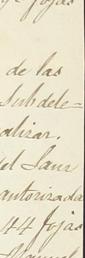 fojas
de las
Subdele-
alizar.
del Sanz
autorizada
44 fojas
Manuel